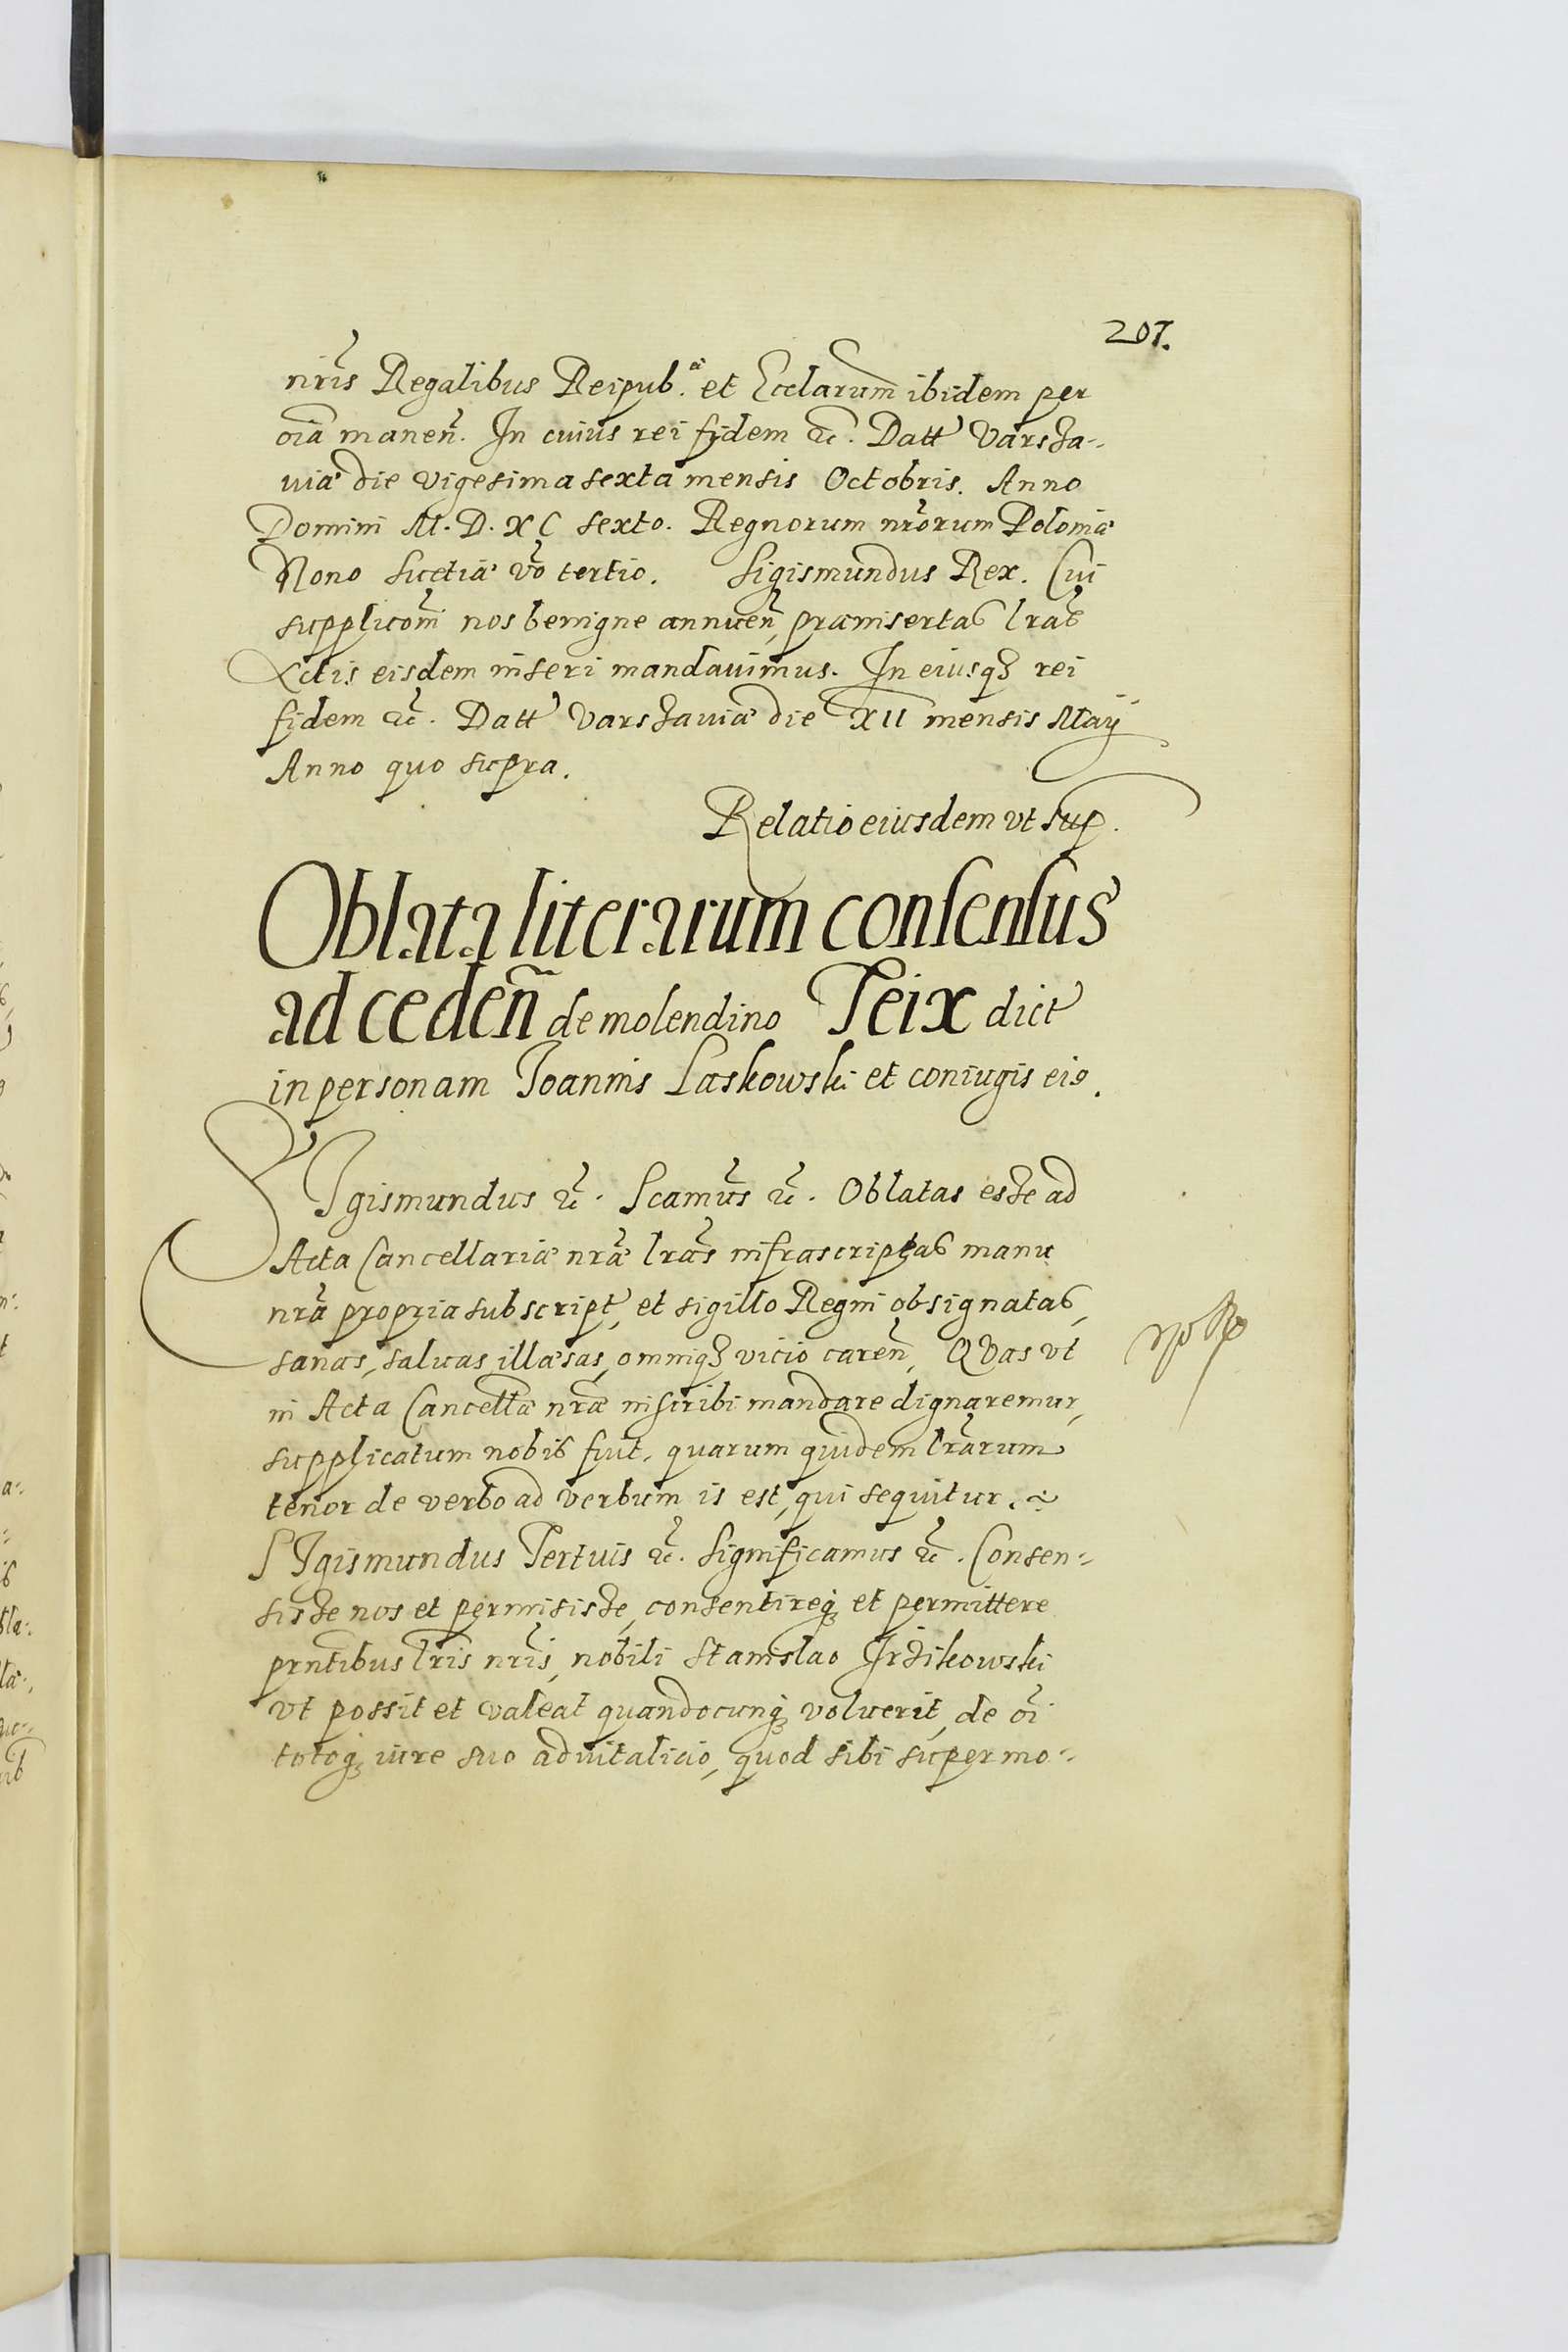 207.
nr̃is Regalibus Reipub.ᵃᵉ et Ecclarum̃ ibidem per
oĩa manen̄. In cuius rei fidem &c̃. Datt Varscha-
uiæ die vigesima sexta mensis Octobris. Anno
Domini M. D. XC sexto. Regnorum nr̃orum Poloniæ
Nono Suetiæ vō tertio. Sigismundus Rex. Cui
supplicōni nos benigne annuen̄, præinsertas lr̃as
Actis eisdem inseri mandauimus. In eiusqʒ rei
fidem &c̃. Datt Varschauiæ die XII mensis Maij
Anno quo supra.
Relatio eiusdem vt sup.
Oblata literarum consensus
ad ceden̄ de molendino Teix dict
in personam Joannis Laskowski et coniugis eiꝰ.
SIgismundus &c̃. Scamũs &c̃. Oblatas esse ad
Acta Cancellariæ nr̃æ lr̃as infrascriptas manu
nr̃a propria subscript, et sigillo Regni obsignatas,
sanas, saluas, illæsas, omniqʒ vicio caren̄, QVas vt
in Acta Cancellæ nr̃æ inscribi mandare dignaremur,
supplicatum nobis fuit, quarum quidem lr̃arum
tenor de verbo ad verbum is est, qui sequitur.
SIgismundus Tertius &c̃. Significamus &c̃. Consen-
sisse nos et permisisse, consentireqʒ et permittere
prntibus lr̃is nr̃is, nobili Stanislao Irzikowski
vt possit et valeat quandocunqʒ voluerit, de oĩ
totoqʒ iure suo aduitalicio, quod sibi super mo-